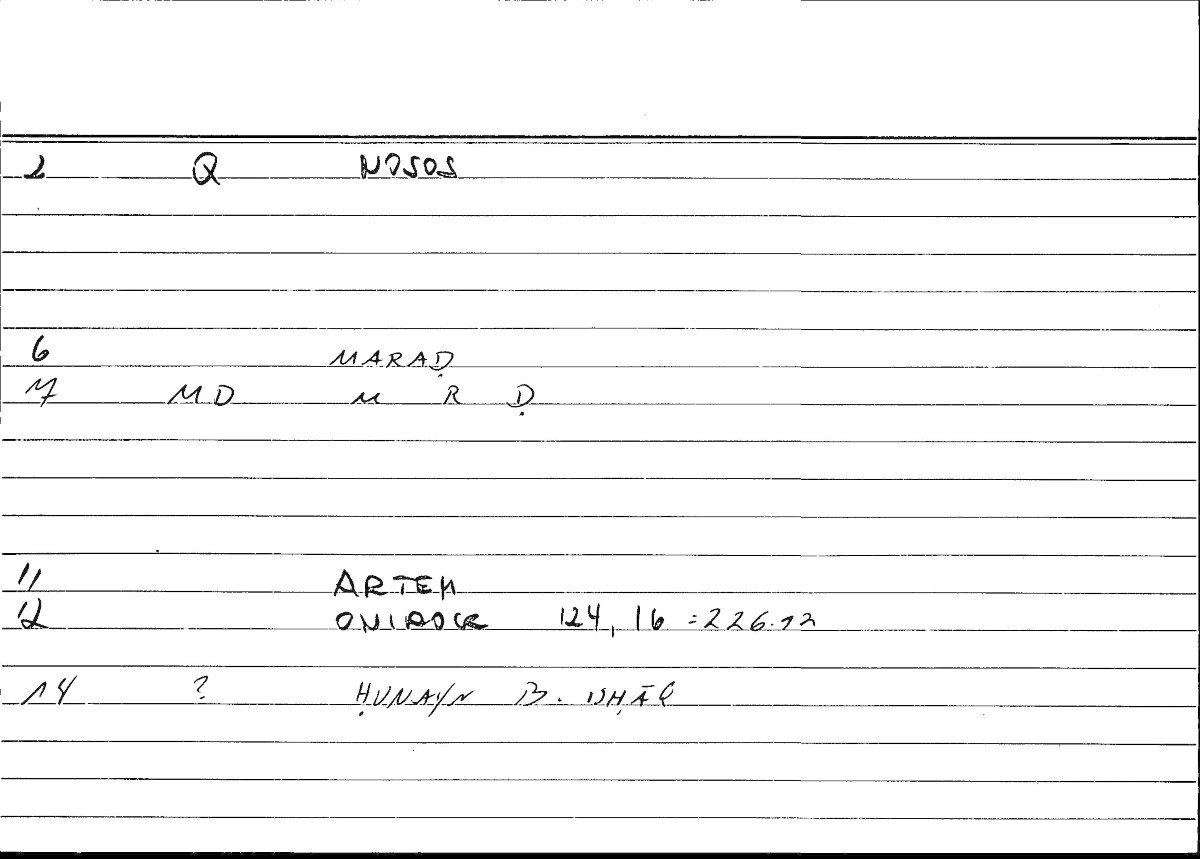 2 Q NOSOS
6 MARAḌ
7 MD M R Ḍ
11 ARTEM
12 ONIROCR 124, 16 = 226.12
14 ? ḤUNAYN B. ISḤĀQ